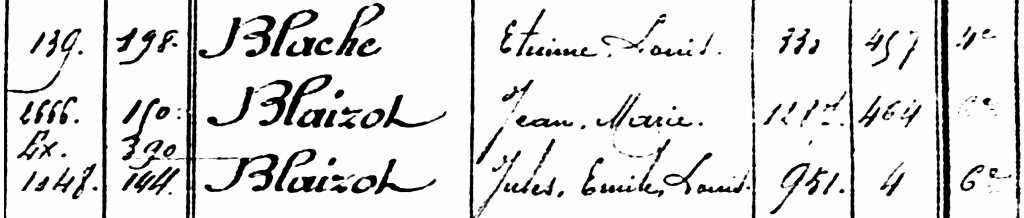 139. 198. Blache Etienne, Louis. 330 457 4e
1666. 150. Blaizot Jean, Marie. 464 6e
Ex. 390
1048. 144. Blaizot Jules, Emile, Louis. 951. 4 6e